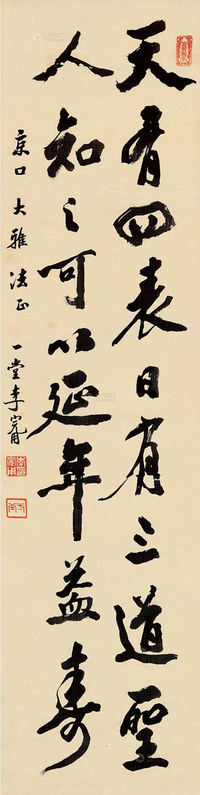 天有四表日有三道聖
人知之可以延年益壽
京口大雅法正 一堂李甯